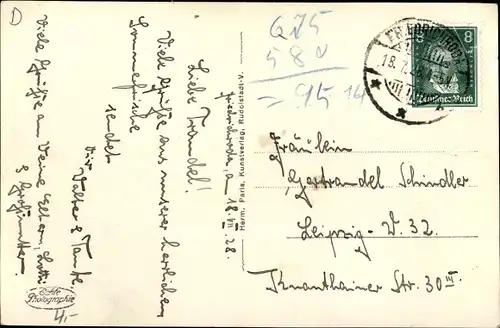 D
675
58d
= 95 14
FRIEDRICHRODA
18.7.28
8
Deutsches Reich
Friedrichroda, am 18.VII.28.
Liebe Traudel!
Viele Grüße aus unserer herrlichen
Sommerfrische
sendet
Dir Vater & Tante.
Viele Grüße an Deine Eltern, Lotti
& Großmutter.
Herm. Paris, Kunstverlag, Rudolstadt-V.
Fräulein
Gertraudel Schindler
Leipzig - W. 32
Knauthainer Str. 30 III
Echte
Photographie
4,-